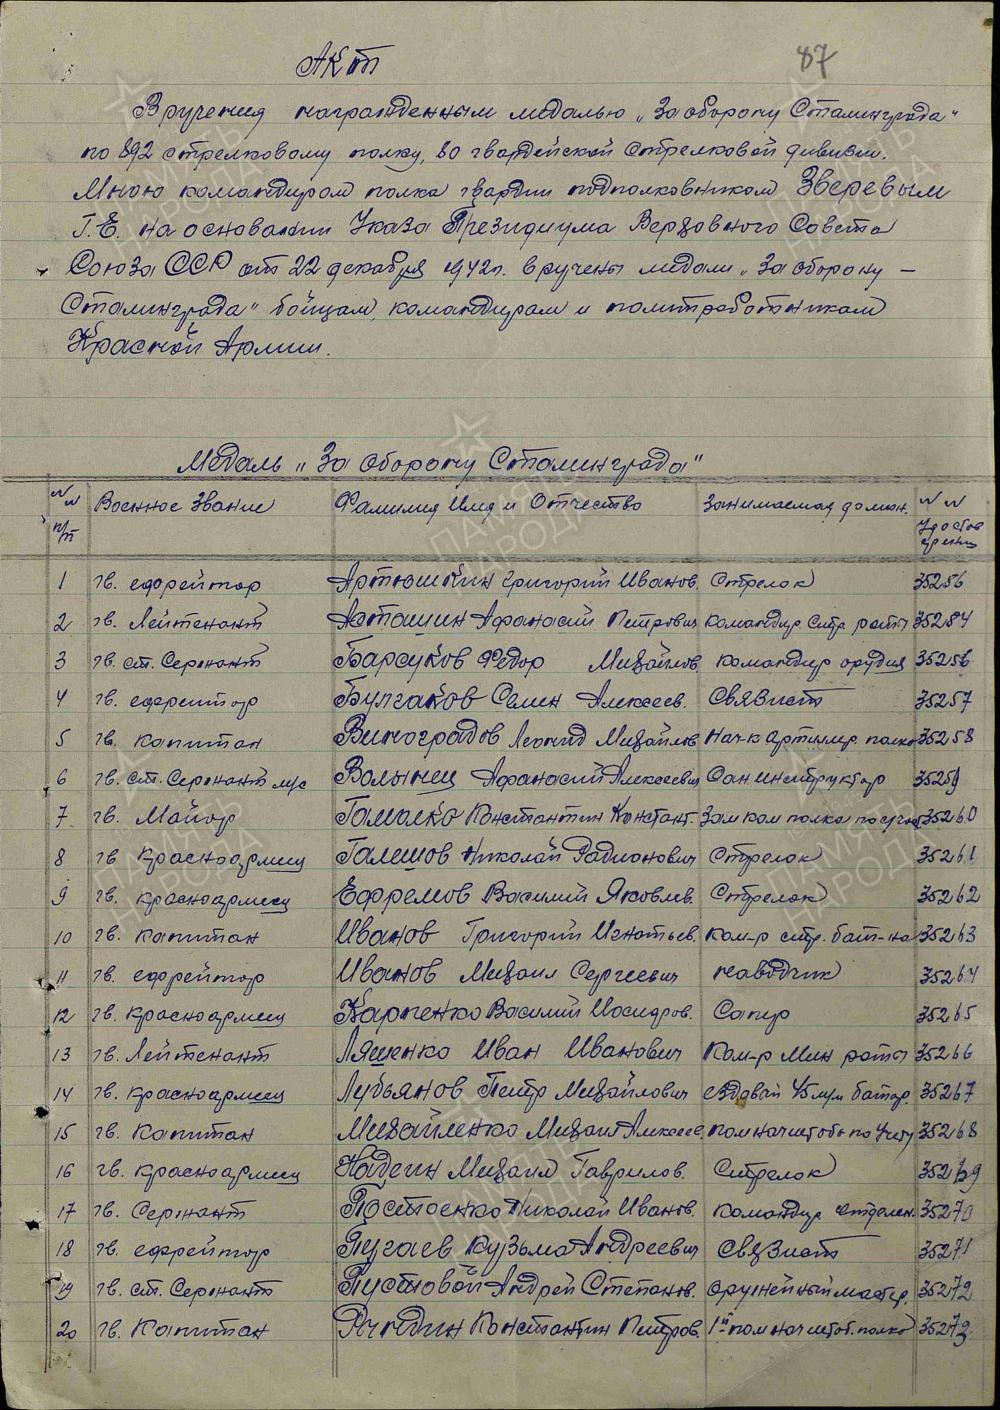 Акт
87
Вручения награжденным медалью „За оборону Сталинграда"
по 892 стрелковому полку, 80 гвардейской стрелковой дивизии.
Мною командиром полка гвардии подполковником Зверевым
Г.Е. на основании Указа Президиума Верховного Совета
Союза ССР от 22 декабря 1942г. вручены медали „За оборону –
Сталинграда" бойцам, командирам и политработникам
Красной Армии.
Медаль „За оборону Сталинграда"
NN п/п Военное Звание Фамилия Имя и Отчество Занимаемая должн. NN Удостоверения
1 гв. ефрейтор Артюшкин Григорий Иванов. Стрелок 35256
2 гв. Лейтенант Асташин Афанасий Петрович командир стр роты 35254
3 гв. ст. Сержант Барсуков Федор Михайлов. командир орудия 35256
4 гв. ефрейтор Булгаков Семен Алексеев. Связист 35257
5 гв. капитан Виноградов Леонид Михайлов нач-к артиллер полка 35258
6 гв. ст. Сержант м/с Волынец Афанасий Алексеевич Сан инструктор 35259
7 гв. Майор Гамалко Константин Констант. Зам ком полка по 35260
8 гв красноармеец Галешов Николай Радионович Стрелок 35261
9 гв. красноармеец Ефремов Василий Яковлев. Стрелок 35262
10 гв. капитан Иванов Григорий Игнатьев. ком-р стр. бат-на 35263
11 гв. ефрейтор Иванов Михаил Сергеевич наводчик 35264
12 гв. красноармеец Карпенко Василий Исидров. Сапер 35265
13 гв. Лейтенант Ляшенко Иван Иванович Ком-р Мин роты 35266
14 гв. красноармеец Лубьянов Петр Михайлович ездовый 45 м/м батар. 35267
15 гв. Капитан Михайленко Михаил Алексеев. пом нач штаба по учету 35268
16 гв. красноармеец Надеин Михаил Гаврилов. Стрелок 35269
17 гв. Сержант Постоенко Николай Иванов. командир отделен. 35270
18 гв. ефрейтор Пугаев Кузьма Андреевич Связист 35271
19 гв. ст. Сержант Пустовой Андрей Степанов. оружейный мастер. 35272
20 гв. Капитан Рындин Константин Петров. 1й пом нач штаб. полка 35273